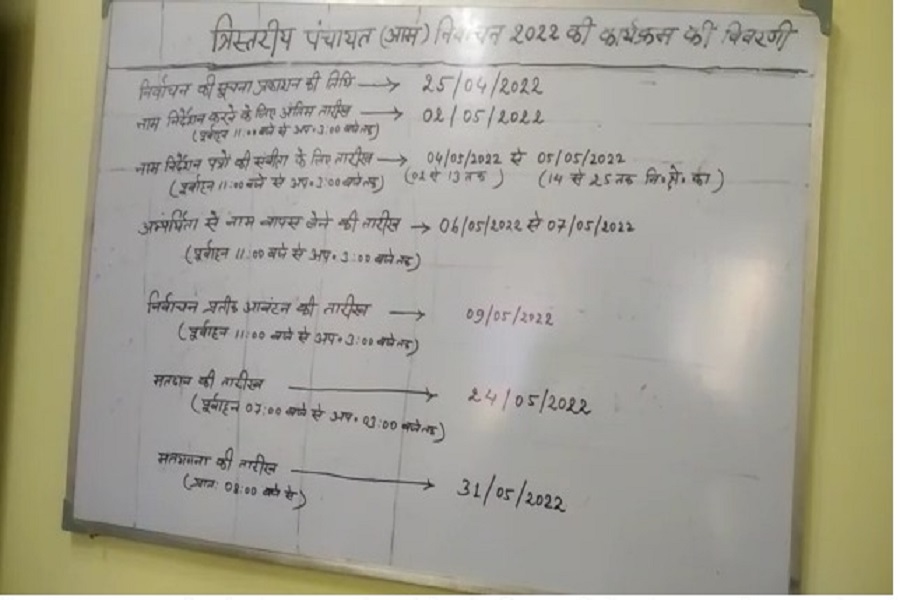 त्रिस्तरीय पंचायत (आम) निर्वाचन 2022 की कार्यक्रम की विवरणी
निर्वाचन की सूचना प्रकाशन की तिथि → 25/04/2022
नाम निर्देशन करने के लिए अंतिम तारीख → 02/05/2022
(पूर्वाहन 11:00 बजे से अप. 3:00 बजे तक)
नाम निर्देशन पत्रों की संवीक्षा के लिए तारीख → 04/05/2022 से 05/05/2022
(पूर्वाहन 11:00 बजे से अप. 3:00 बजे तक) (02 से 13 तक) (14 से 25 तक नि.क्षे. का)
अभ्यर्थिता से नाम वापस लेने की तारीख → 06/05/2022 से 07/05/2022
(पूर्वाहन 11:00 बजे से अप. 3:00 बजे तक)
निर्वाचन प्रतीक आवंटन की तारीख → 09/05/2022
(पूर्वाहन 11:00 बजे से अप. 3:00 बजे तक)
मतदान की तारीख → 24/05/2022
(पूर्वाहन 07:00 बजे से अप. 03:00 बजे तक)
मतगणना की तारीख → 31/05/2022
(प्रातः 08:00 बजे से)